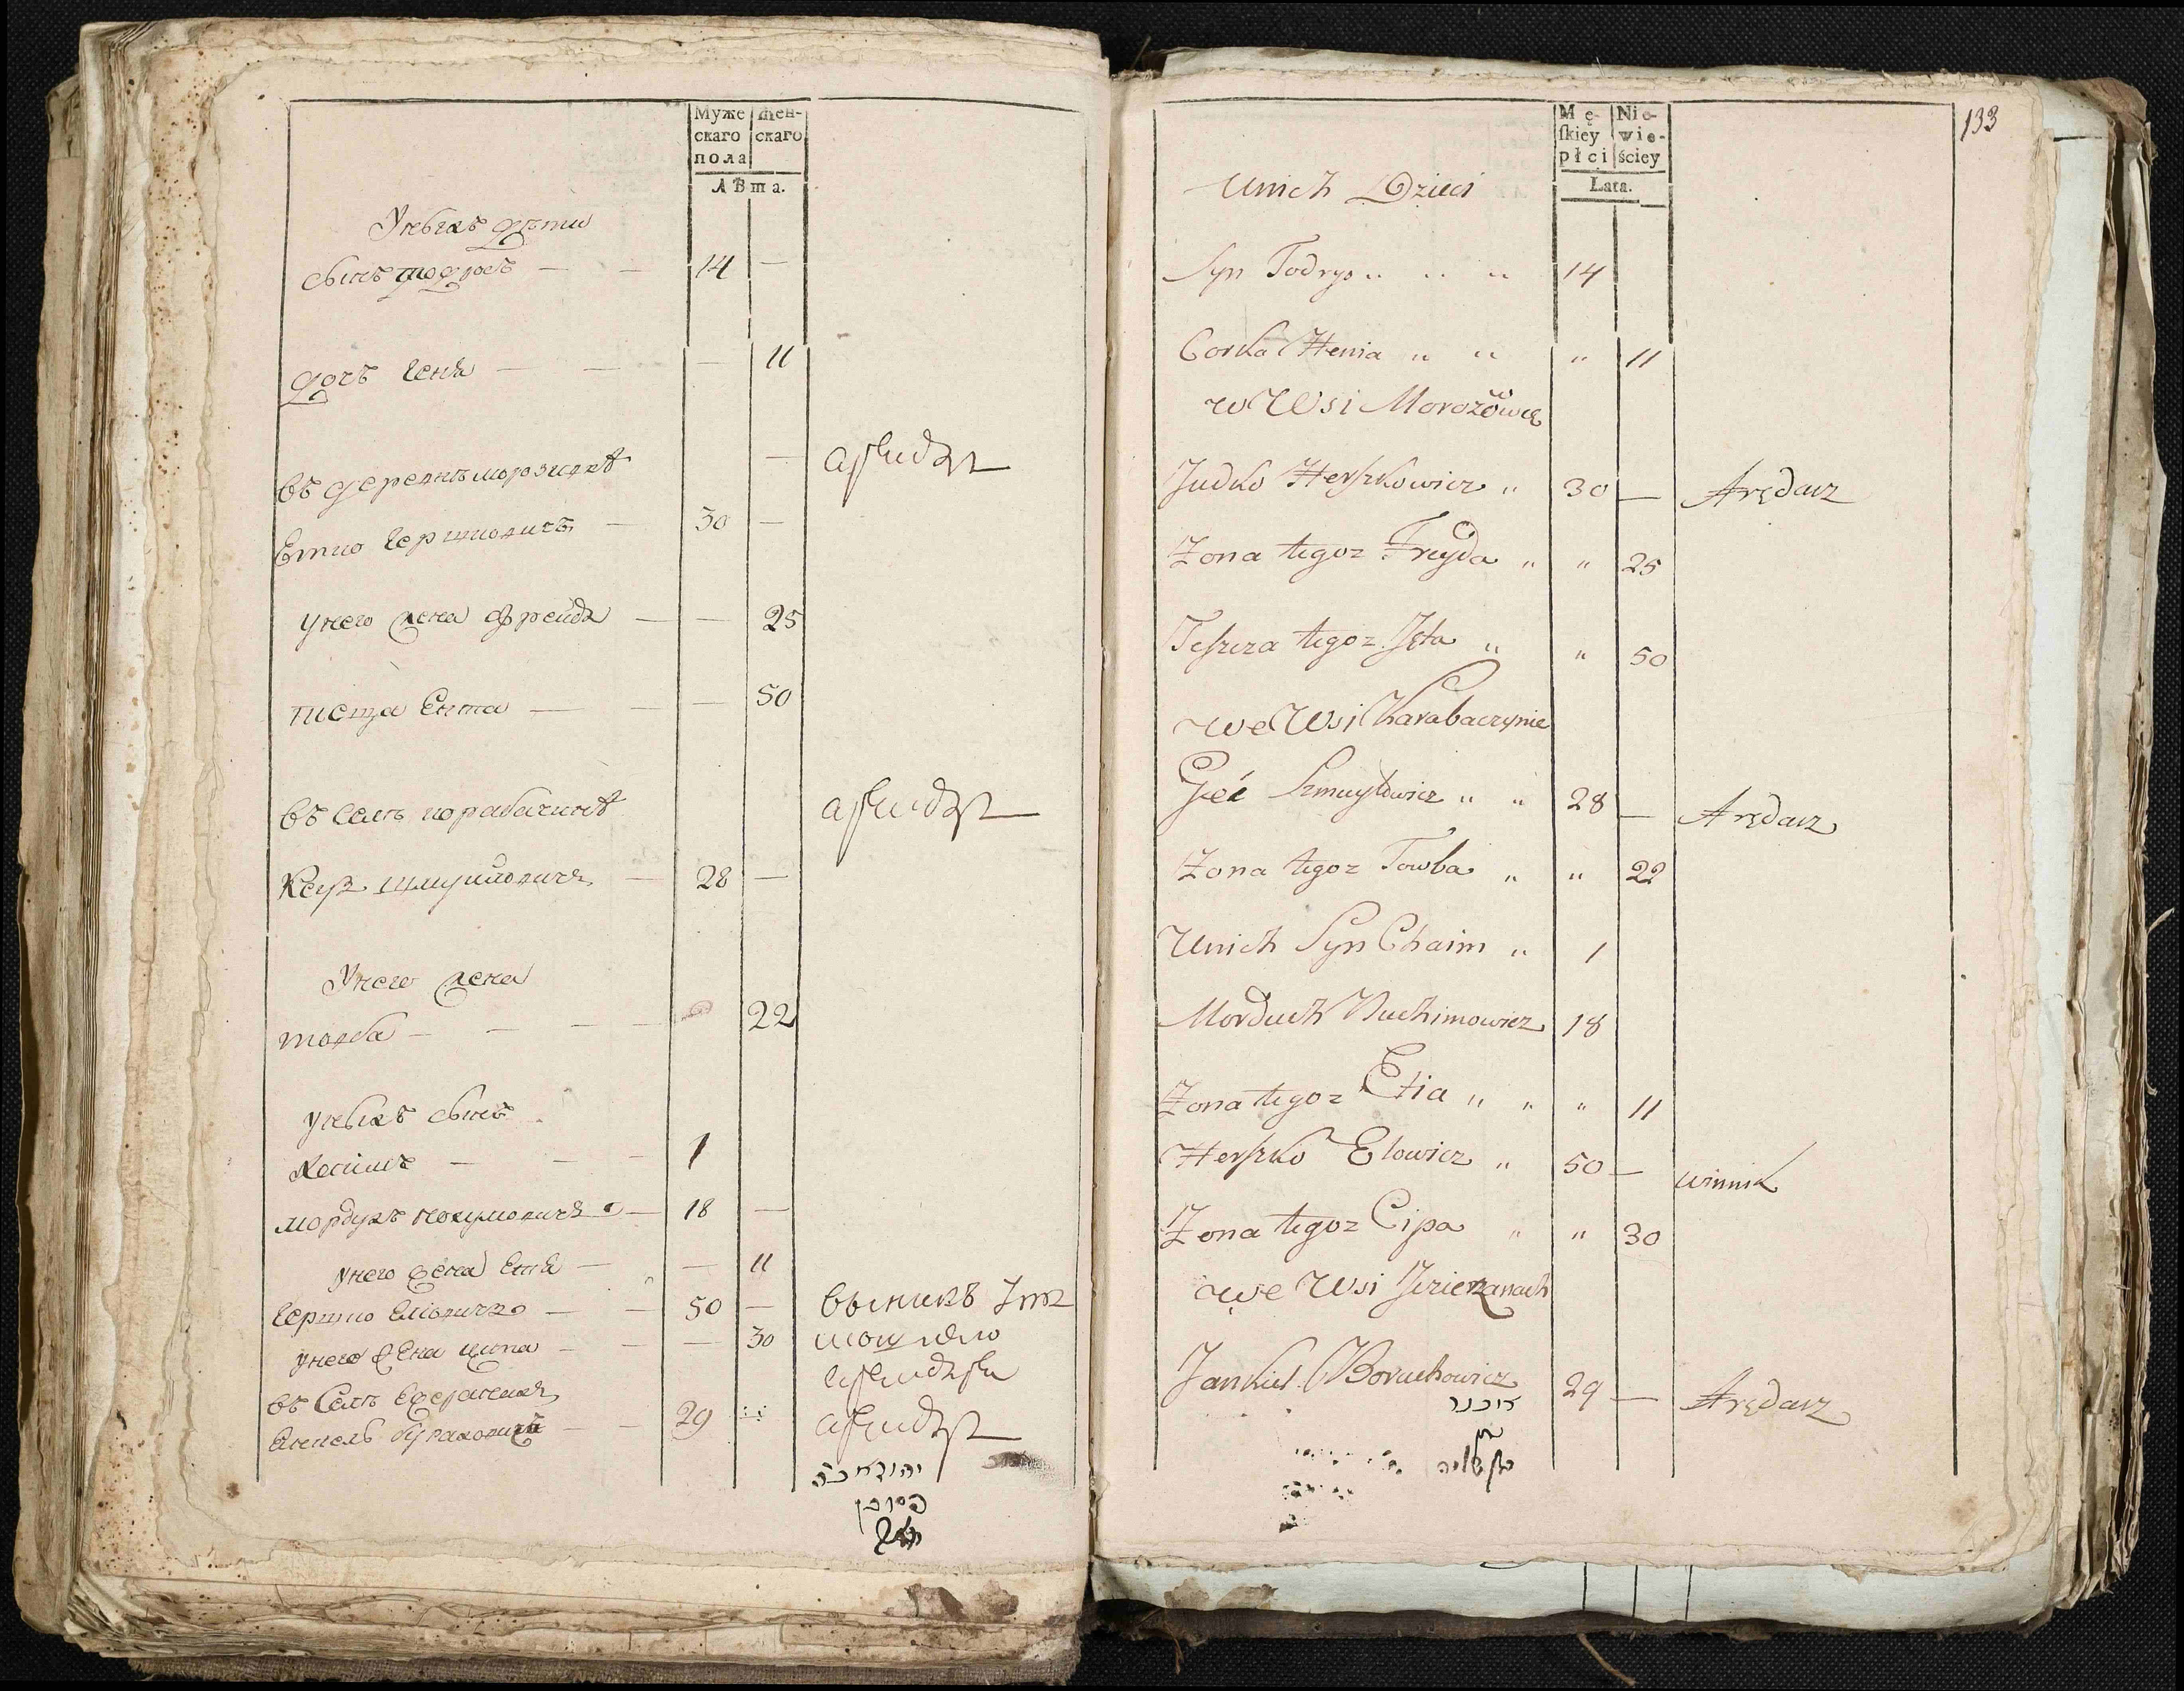 Муже
скаго
пола
жен-
скаго
лѣта.
У ныхъ дѣти
сынъ тодросъ — — 14 —
дочъ геня — — — 11
въ деревнѣ морозивкѣ — арендаръ
Гершковичъ — 30 —
у него жена фрейда — — 25
тиеща Ента — — — 50
въ селѣ корабачинѣ арендаръ
шмуйловичъ — 28 —
У него жена
товба — — — — 22
у ныхъ сынъ
хаимъ — — — 1
мордухъ нохимовичъ — 18 —
у него жена Етя — — 11
гершко Елiовичъ — — 50 — выникъ
у него жена ципа — — — 30
въ селѣ
Янкель — — 29 арендаръ
133
Mę-
ſkiey
płci
Nie-
wie-
ściey
Lata.
Unich Dzieci
Syn Todrys „ „ „ 14
Corka Henia „ „ „ 11
w Wsi Morozówce
Judko Herszkowicz „ 30 — Arędarz
Zona tegoz Freyda „ „ 25
Teszcza tegoz Jęta „ „ 50
we Wsi Karabaczynie
Szmuyłowicz „ „ 28 — Arędarz
Zona tegoz Towba „ „ 22
Unich Syn Chaim „ 1
Morduch Nuchimowicz 18
Zona tegoz Etia „ „ „ 11
Herszko Elowicz „ 50 — winnik
Zona tegoz Cipa „ „ 30
we Wsi Jezierzanach
Jankiel Boruchowicz 29 — Arędarz